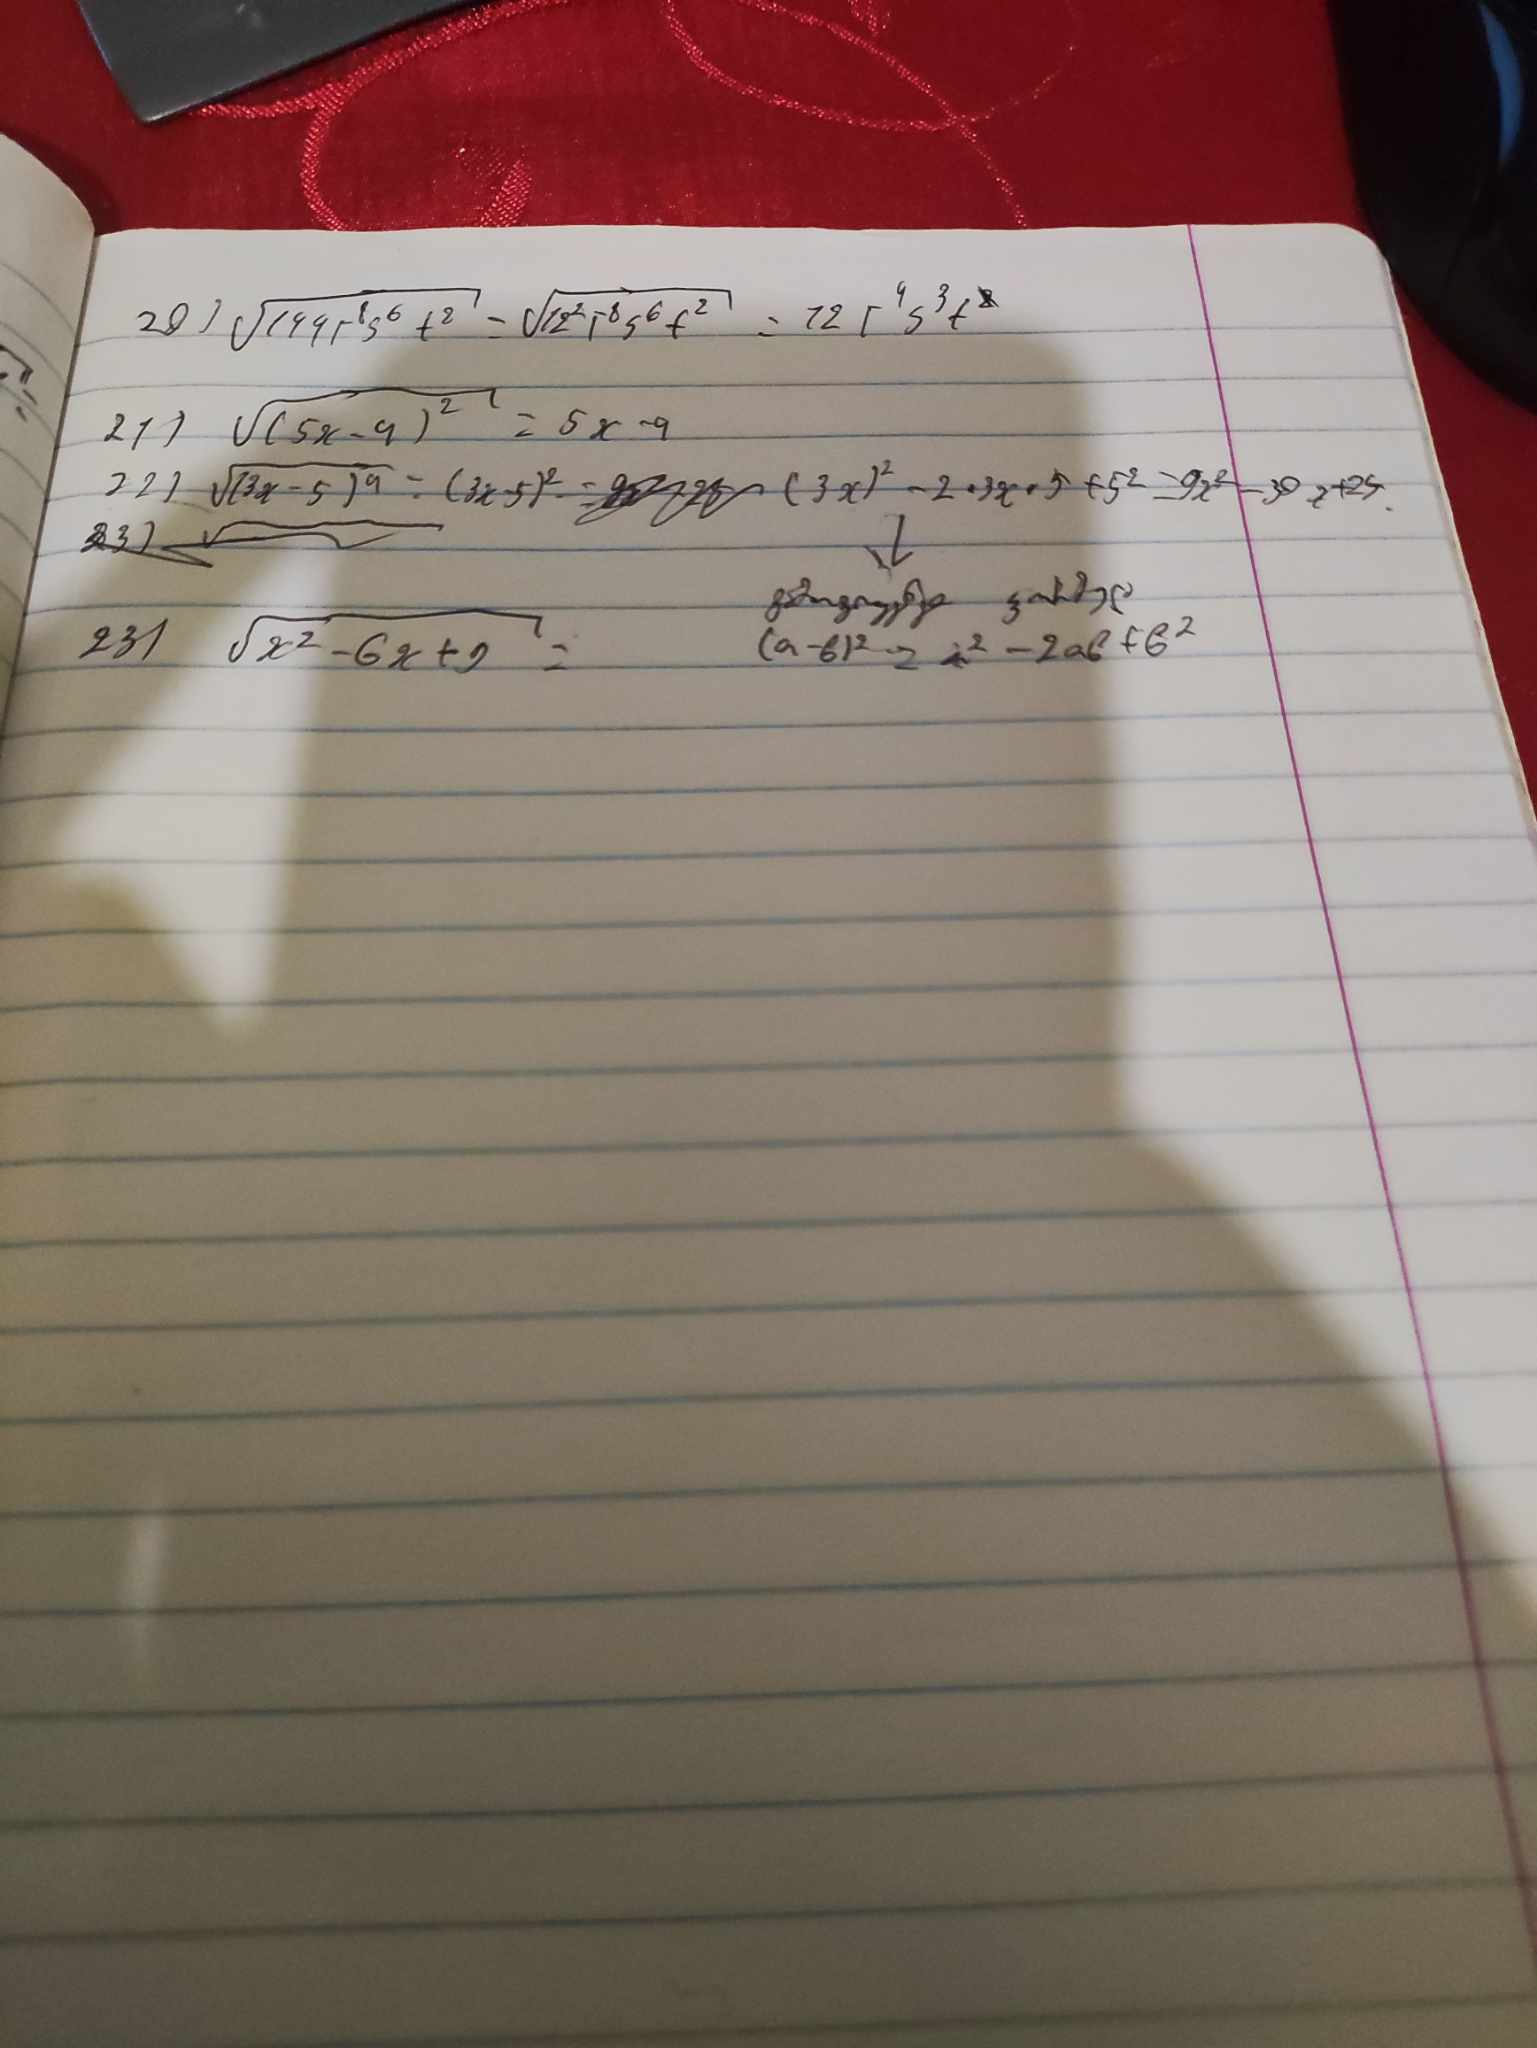 20) √144r⁸s⁶t² = √12²r⁸s⁶t² = 12r⁴s³t
21) √(5x-4)² = 5x-4
22) √(3x-5)⁴ = (3x-5)² = (3x)² - 2·3x·5 + 5² = 9x² - 30x + 25.
23) √x² - 6x + 9 =
(a-b)² = a² - 2ab + b²